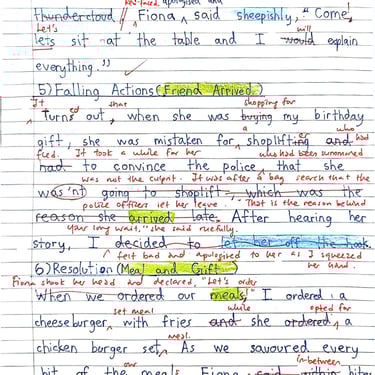 red-faced, apologised and
thundercloud, Fiona said sheepishly, "Come,
Let's will
lets sit at the table and I would explain
everything."
5) Falling Actions (Friend Arrived)
It that shopping for
Turns out, when she was buying my birthday
a who
gift, she was mistaken for shoplifter and had
fled. It took a while for her who had been summoned
had to convince the police that she
was not the culprit. It was after a bag search that the
wasn't going to shoplift, which was the
police officers let her leave. "That is the reason behind
reason she arrived late. After hearing her
your long wait," she said ruefully.
story, I decided to let her off the hook.
felt bad and apologised to her as I squeezed
her hand.
6) Resolution (Meal and Gift)
Fiona shook her head and declared, "Let's order
When we ordered our meals," I ordered a
set meal while opted for
cheeseburger with fries and she ordered a
meal.
chicken burger set. As we savoured every
our in-between
bit of the meals, Fiona said within bites